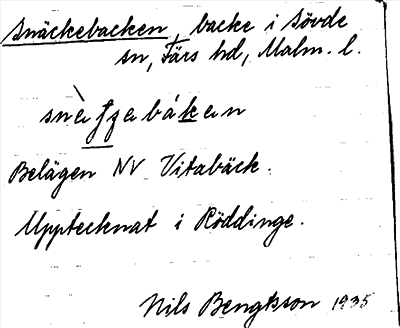 Snäckebacken, backe i Sövde
sn, Färs hd, Malm. l.
Belägen NV Vitabäck.
Upptecknat i Röddinge.
Nils Bengtsson 1935